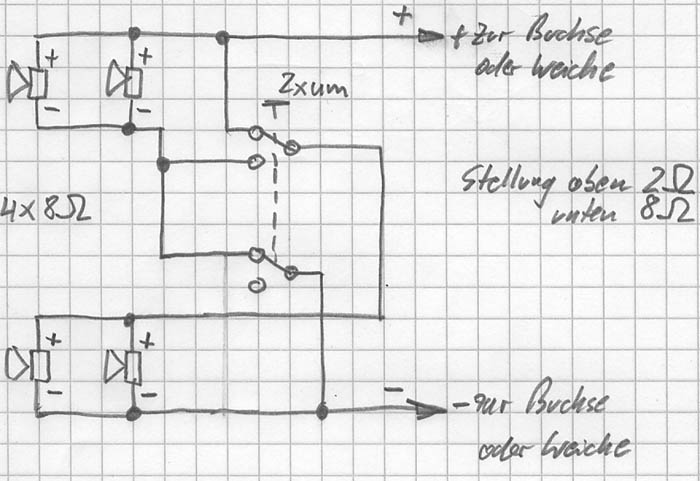 +
+ zur Buchse
oder Weiche
+
+
-
-
2xum
Stellung oben 2Ω
unten 8Ω
4x8Ω
+
+
-
-
-
- zur Buchse
oder Weiche